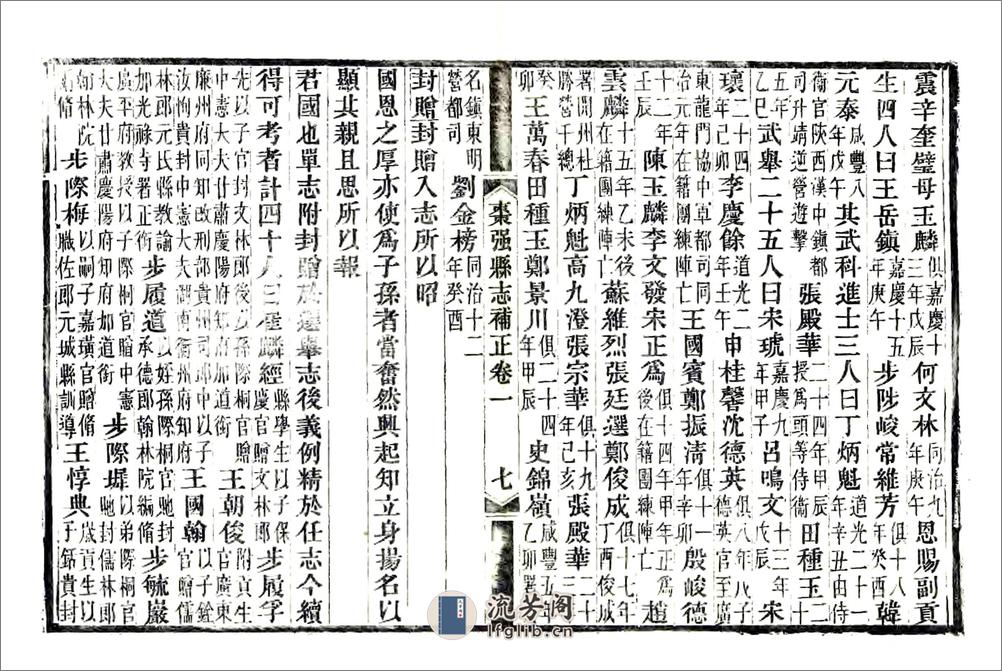 震辛奎璧母玉麟俱嘉慶十三年戊辰何文林同治九年庚午恩賜副貢
生四人曰王岳鎮嘉慶十五年庚午步陟峻常維芳俱十八年癸酉韓
元泰咸豐八年戊午其武科進士三人曰丁炳魁道光二十一年辛丑由侍
衞官陝西漢中鎮都司升靖逆營遊擊張殿華二十四年甲辰授為頭等侍衞田種玉二十
五年乙巳武舉二十五人曰宋琥嘉慶九年甲子呂鳴文十三年戊辰宋
瓌二十四年己卯李慶餘道光二年壬午申桂馨沈德英俱八年戊子德英官至廣
東龍門協中軍都司同治元年在籍團練陣亡王國賓鄭振清俱十一年辛卯殷峻德
十二年壬辰陳玉麟李文發宋正為後在籍團練陣亡趙
雲麟十五年乙未後在籍團練陣亡蘇維烈張廷選鄭俊成俱十七年丁酉俊成
署開州杜勝營千總丁炳魁高九澄張宗華俱十九年己亥張殿華二十三年
癸卯王萬春田種玉鄭景川俱二十四年甲辰史錦嶺咸豐五年乙卯
名鎮東明營都司劉金榜同治十二年癸酉
封贈封贈入志所以昭
國恩之厚亦使為子孫者當奮然興起知立身揚名以
顯其親且思所以報
君國也單志附封贈於選舉志後義例精於任志今續
得可考者計四十人曰 麟經縣學生以子保慶官贈文林郎步履孚
先以子官封文林郎後以孫際桐官贈中憲大夫甘肅慶陽府知府加道銜王朝俊附貢生以子官廣東
廉州府同知改刑部貴州司郎中封中憲大夫湖南衡州府知府王國翰以子銓官贈儒
林郎元氏縣教諭加光祿寺署正銜步履道以姪孫際桐官貤封承德郎翰林院編修步毓嚴
廣平府教授以子際桐官贈中憲大夫甘肅慶陽府知府加道銜步際墀以弟際桐官貤封儒林郎
翰林院編修步際梅以嗣子嘉璜官贈脩職佐郎元城縣訓導王惇典歲貢生以子銛貴封
棗强縣志補正卷一
七
流芳閣
lfglib.cn